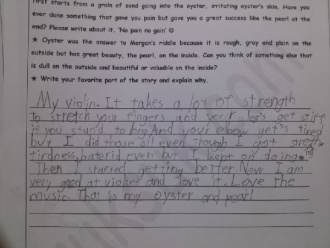 first starts from a grain of sand going into the oyster, irritating oyster's skin. Have you
ever done something that gave you pain but gave you a great success like the pearl at the
end? Please write about it. 'No pain no gain' ☺
★ Oyster was the answer to Morgan's riddle because it is rough, gray and plain on the
outside but has great beauty, the pearl, on the inside. Can you think of something else that
is dull on the outside and beautiful or valuable on the inside?
★ Write your favorite part of the story and explain why.
My violin. It takes a lot of strength
to stretch your fingers and your leg's get stiff
if you stand to and your elbow get's tired
but I did those all even though I got great
tirdness, haterid even but I kept on doing.
Then I started getting better. Now I am
very good at violin and love it. Love the
music. That is my oyster and pearl